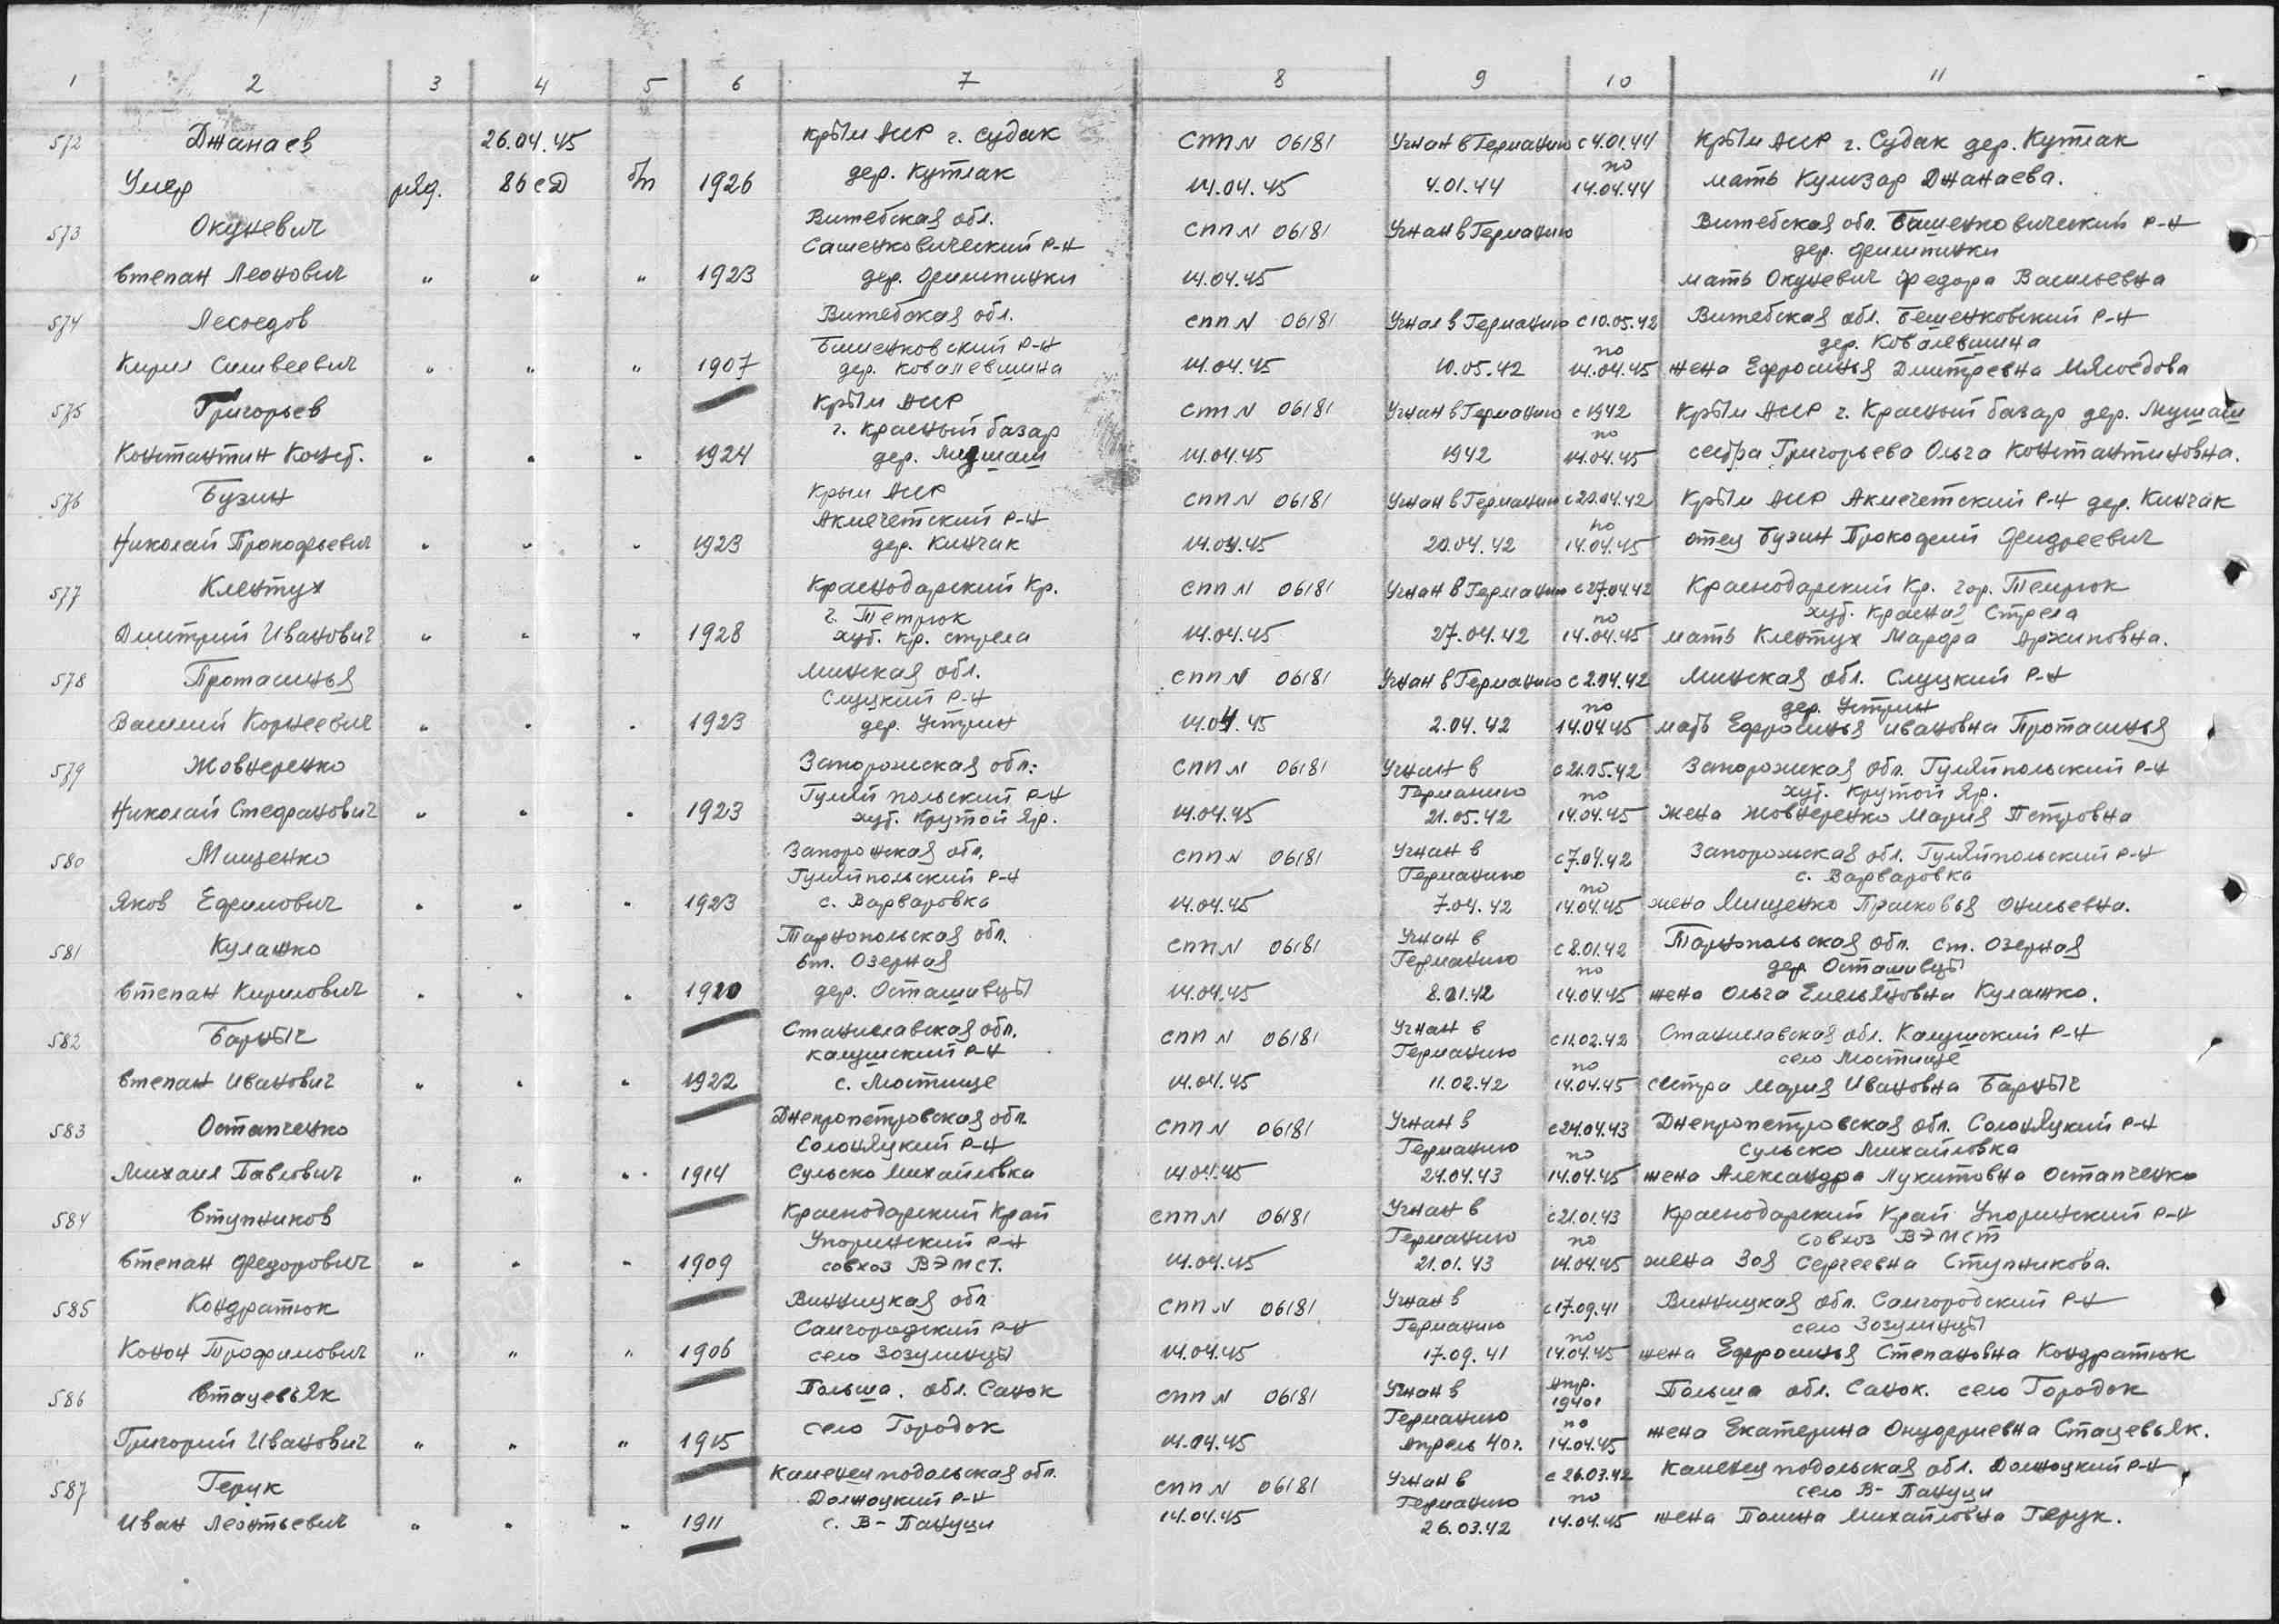 1 2 3 4 5 6 7 8 9 10 11
572 Джанаев 26.04.45 Крым АССР г. Судак СПП N 06181 Угнан в Германию с 4.01.44 Крым АССР г. Судак дер. Кутлак
Умер ряд. 86 СД б/п 1926 дер. Кутлак 14.04.45 4.01.44 по 14.04.44 мать Кулизар Джанаева.
573 Окуневич Витебская обл. СПП N 06181 Угнан в Германию Витебская обл. Башенковический р-н
Сашенковический р-н дер. Филиппинки
Степан Леонович " " " 1923 дер. Филиппинки 14.04.45 мать Окуневич Федора Васильевна
574 Лесоедов Витебская обл. СПП N 06181 Угнан в Германию с 10.05.42 Витебская обл. Бешенковский р-н
Бишенковский р-н по дер. Ковалевшина
Кирил Силвеевич " " " 1907 дер. Ковалевшина 14.04.45 10.05.42 14.04.45 жена Ефросинья Дмитревна Мясоедова
575 Григорьев Крым АССР СПП N 06181 Угнан в Германию с 1942 Крым АССР г. Красный базар дер. Мушаш
г. Красный базар по
Константин Конст. " " " 1924 дер. Мушаш 14.04.45 1942 14.04.45 сестра Григорьева Ольга Константиновна.
576 Бузин Крым АССР СПП N 06181 Угнан в Германию с 20.04.42 Крым АССР Акмечетский р-н дер. Кинчак
Акмечетский р-н по
Николай Прокофьевич " " " 1923 дер. Кинчак 14.04.45 20.04.42 14.04.45 отец Бузин Прокофий Фидреевич
577 Клентух Краснодарский Кр. СПП N 06181 Угнан в Германию с 27.04.42 Краснодарский Кр. гор. Темрюк
г. Петрюк по хут. Красная Стрела
Дмитрий Иванович " " " 1928 хут. Кр. стрела 14.04.45 27.04.42 14.04.45 мать Клентух Марфа Архиповна.
578 Протасинья Минская обл. СПП N 06181 Угнан в Германию с 2.04.42 Минская обл. Слуцкий р-н
Слуцкий р-н по дер. Устрин
Василий Корнеевич " " " 1923 дер. Устрин 14.04.45 2.04.42 14.04.45 мать Ефросинья Ивановна Протасинья
579 Жовнеренко Запорожская обл. СПП N 06181 Угнан в с 21.05.42 Запорожская обл. Гуляйпольский р-н
Гуляйпольский р-н Германию по хут. Крутой Яр.
Николай Стефанович " " " 1923 хут. Крутой Яр. 14.04.45 21.05.42 14.04.45 жена Жовнеренко Мария Петровна
580 Мищенко Запорожская обл. СПП N 06181 Угнан в с 7.04.42 Запорожская обл. Гуляйпольский р-н
Гуляйпольский р-н Германию по с. Варваровка
Яков Ефимович " " " 1923 с. Варваровка 14.04.45 7.04.42 14.04.45 жена Мищенко Прасковья
581 Кулашко Тарнопольская обл. СПП N 06181 Угнан в с 8.01.42 Тарнопольская обл. ст. Озерная
ст. Озерная Германию по дер. Осташивцы
Степан Кирилович " " " 1920 дер. Осташивцы 14.04.45 8.01.42 14.04.45 жена Ольга Емельяновна Кулашко.
582 Барныч Станиславская обл. СПП N 06181 Угнан в с 11.02.42 Станиславская обл. Калушский р-н
Калушский р-н Германию по село Мостище
Степан Иванович " " " 1922 с. Мостище 14.04.45 11.02.42 14.04.45 сестра Мария Ивановна Барныч
583 Остапченко Днепропетровская обл. СПП N 06181 Угнан в с 24.04.43 Днепропетровская обл. Солоняцкий р-н
Солоняцкий р-н Германию по Сульско Михайловка
Михаил Павлович " " " 1914 Сульско Михайловка 14.04.45 24.04.43 14.04.45 жена Александра Лукитовна Остапченко
584 Ступников Краснодарский Край СПП N 06181 Угнан в с 21.01.43 Краснодарский Край Упоринский р-н
Упоринский р-н Германию по совхоз ВЭМСТ
Степан Федорович " " " 1909 совхоз ВЭМСТ. 14.04.45 21.01.43 14.04.45 жена Зоя Сергеевна Ступникова.
585 Кондратюк Винницкая обл СПП N 06181 Угнан в с 17.09.41 Винницкая обл. Самгородский р-н
Самгородский р-н Германию по село Зозулинцы
Конон Трофимович " " " 1906 село Зозулинцы 14.04.45 17.09.41 14.04.45 жена Ефросинья Степановна Кондратюк
586 Стацевьяк Польша. обл. Санок СПП N 06181 Угнан в Апр. 1940г Польша обл. Санок. село Городок
село Городок Германию по
Григорий Иванович " " " 1915 14.04.45 Апрель 40г. 14.04.45 жена Екатерина Онуфриевна Стацевьяк.
587 Герук Каменец подольская обл. СПП N 06181 Угнан в с 26.03.42 Каменец подольская обл. Должоцкий р-н
Должоцкий р-н Германию по село В-Пануци
Иван Леонтьевич " " " 1911 с. В-Пануци 14.04.45 26.03.42 14.04.45 жена Полина Михайловна Герук.